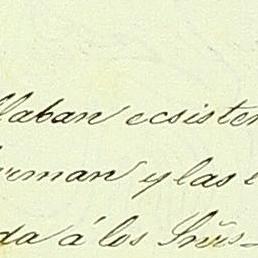 llaban ecsisten
rman y las
da á los Sñrs